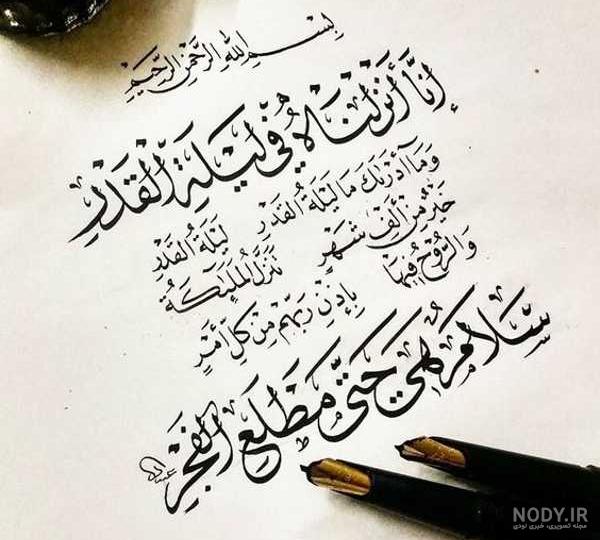 بِسْمِ اللهِ الرَّحْمٰنِ الرَّحِيْمِ
اِنَّا أَنْزَلْنَاهُ فِي لَيْلَةِ الْقَدْرِ
وَمَا أَدْرٰىكَ مَا لَيْلَةُ الْقَدْرِ لَيْلَةُ الْقَدْرِ
خَيْرٌ مِنْ أَلْفِ شَهْرٍ تَنَزَّلُ الْمَلٰئِكَةُ
وَالرُّوْحُ فِيهَا بِإِذْنِ رَبِّهِمْ مِنْ كُلِّ أَمْرٍ
سَلَامٌ هِيَ حَتّٰى مَطْلَعِ الْفَجْرِ
NODY.IR
مجله تصویری، خبری نودی